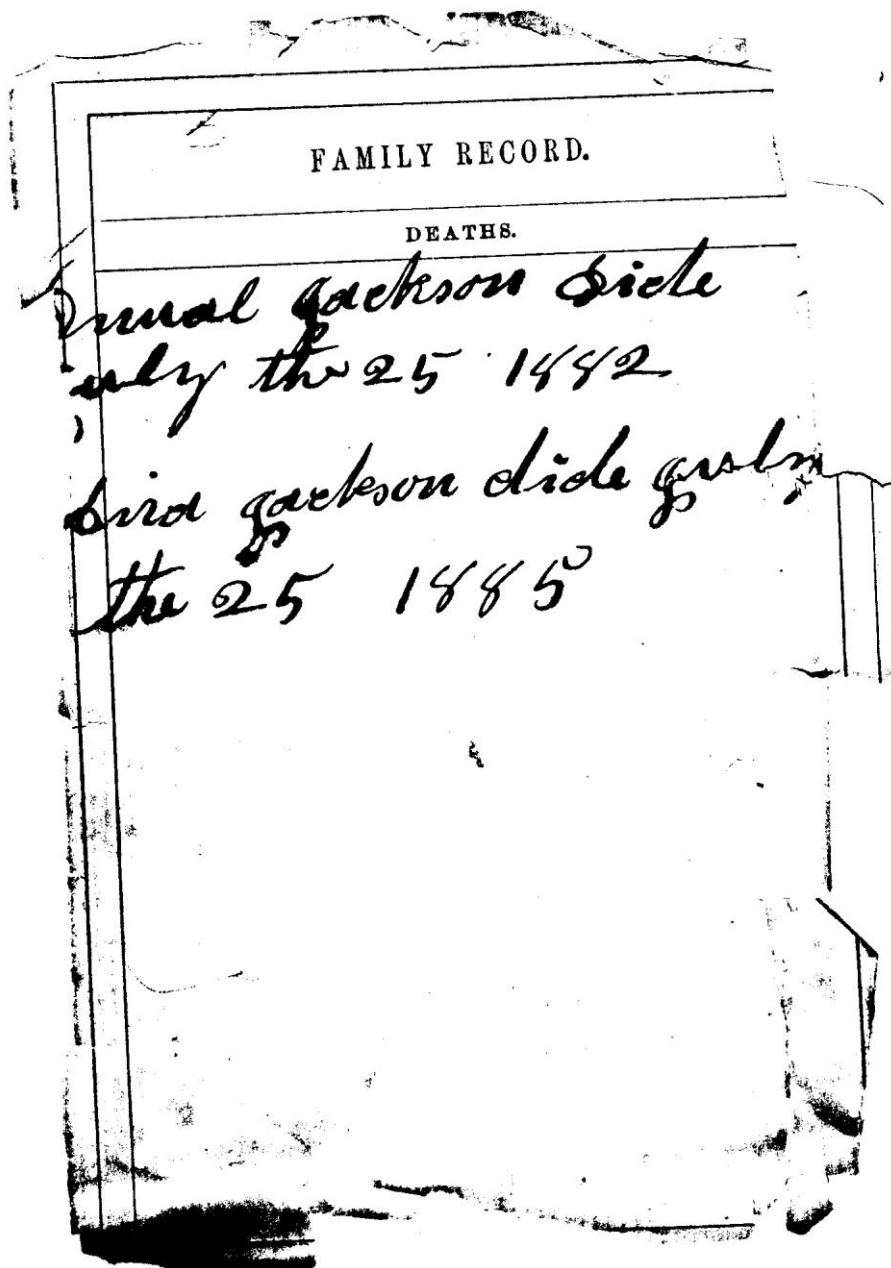 FAMILY RECORD.
DEATHS.
Jackson dide
the 25 1882
Jackson dide July
the 25 1885